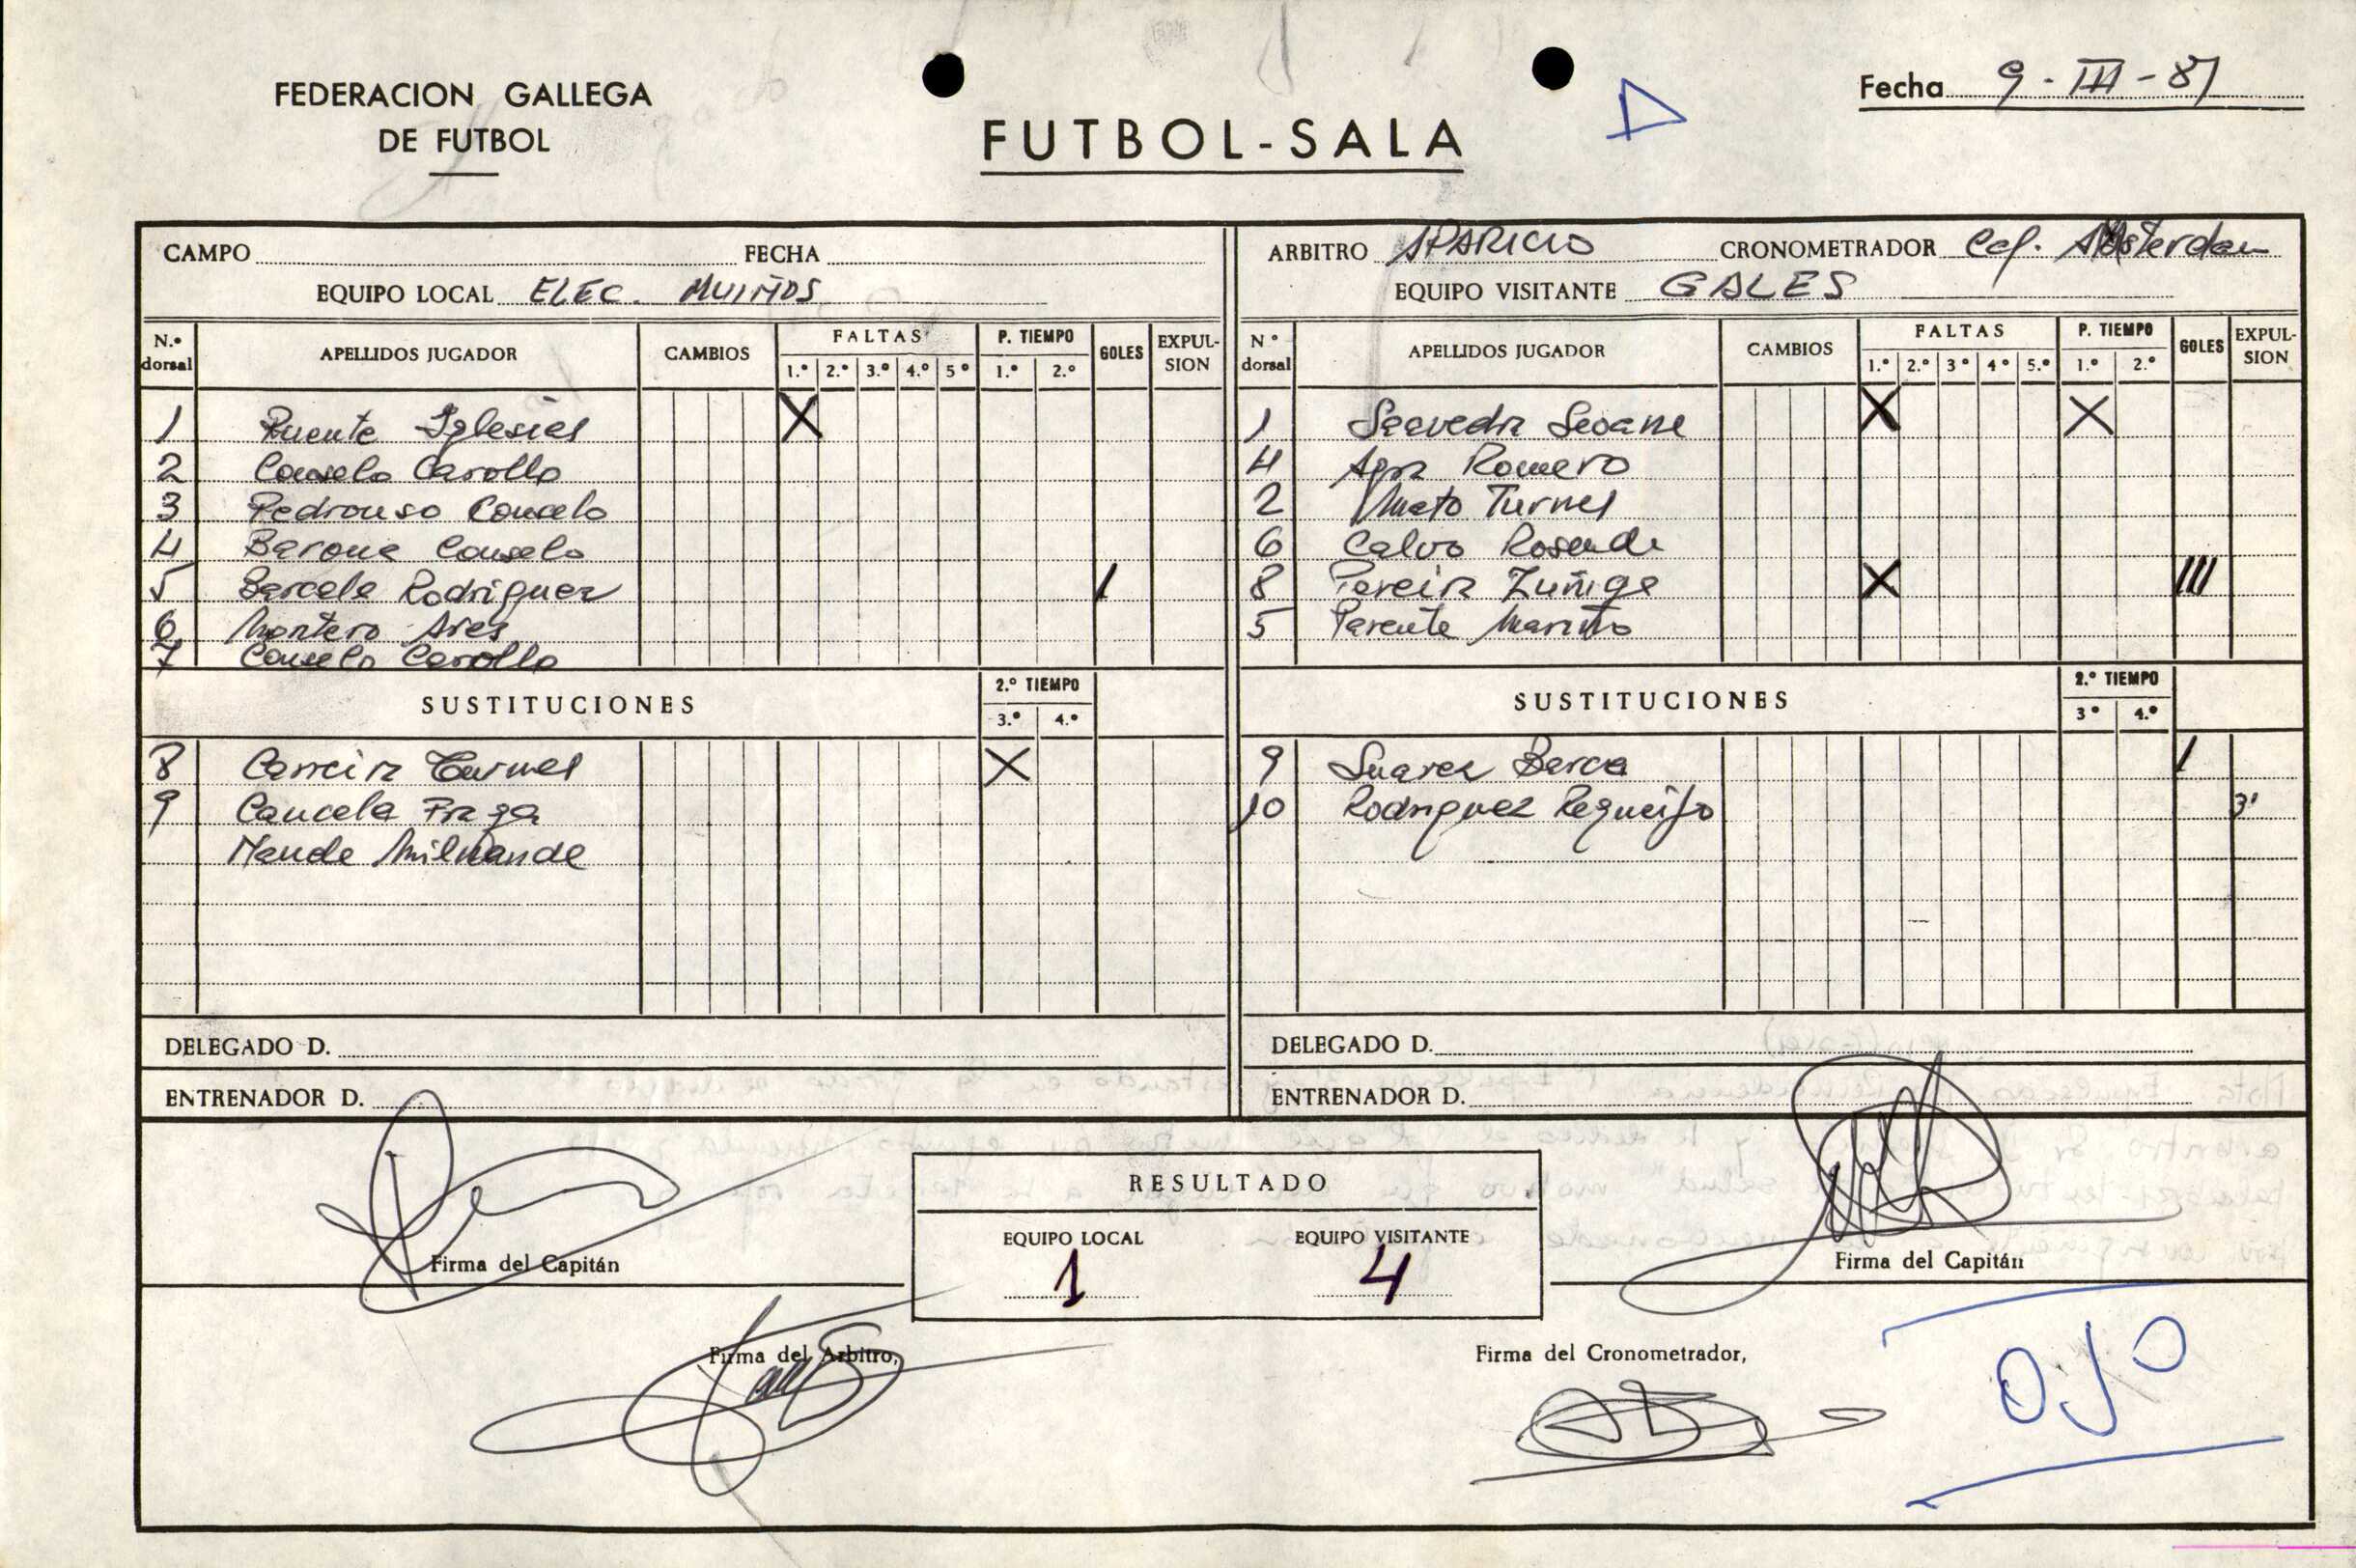 FEDERACION GALLEGA
DE FUTBOL
FUTBOL-SALA
Fecha 9-III-87
CAMPO FECHA
EQUIPO LOCAL ELEC. MUIÑOS
ARBITRO APARICIO CRONOMETRADOR Caf. Amsterdam
EQUIPO VISITANTE GALES
N.º dorsal APELLIDOS JUGADOR CAMBIOS FALTAS 1.º 2.º 3.º 4.º 5º P. TIEMPO 1.º 2.º GOLES EXPULSION
1 Puente Iglesias X
2 Couselo Carollo
3 Pedrouso Couselo
4 Couselo
5 Barcala Rodriguez I
6 Montero Ares
7 Couselo Carollo
SUSTITUCIONES 2.º TIEMPO 3.º 4.º
8 Carreira Turnes X
9 Cancela Fraga
Naude
DELEGADO D.
ENTRENADOR D.
N º dorsal APELLIDOS JUGADOR CAMBIOS FALTAS 1.º 2.º 3º 4º 5.º P. TIEMPO 1.º 2.º GOLES EXPULSION
1 Saavedra Seoane X X
4 Agra Romero
2 Mato Turnes
6 Calvo Rosende
8 Pereira Zuñiga X III
5 Parente Mariño
SUSTITUCIONES 2.º TIEMPO 3º 4.º
9 Suarez Barca I
10 Rodriguez Requeijo 3'
DELEGADO D.
ENTRENADOR D.
RESULTADO
EQUIPO LOCAL EQUIPO VISITANTE
1 4
Firma del Capitán
Firma del Capitán
Firma del Arbitro,
Firma del Cronometrador,
OJO